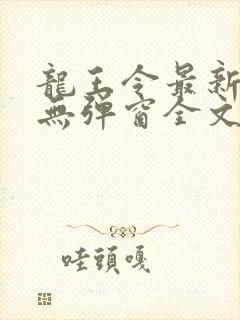 龍王令最新
無彈窗全文
哇頭嘎